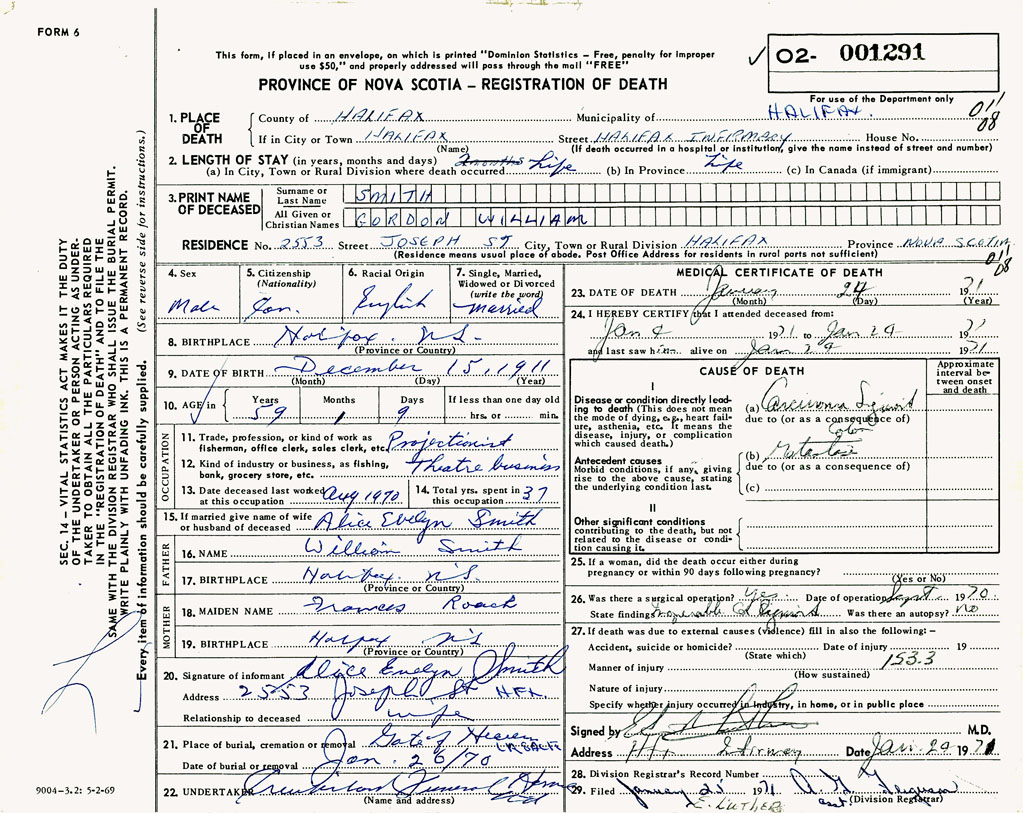 FORM 6
This form, if placed in an envelope, on which is printed "Dominion Statistics – Free, penalty for improper
use $50," and properly addressed will pass through the mail "FREE"
PROVINCE OF NOVA SCOTIA – REGISTRATION OF DEATH
✓ 02- 001291
For use of the Department only
1. PLACE OF DEATH
County of HALIFAX Municipality of HALIFAX.
If in City or Town HALIFAX Street HALIFAX INFIRMARY House No.
(Name) (If death occurred in a hospital or institution, give the name instead of street and number)
2. LENGTH OF STAY (in years, months and days)
(a) In City, Town or Rural Division where death occurred Life (b) In Province Life (c) In Canada (if immigrant)
3. PRINT NAME OF DECEASED
Surname or Last Name SMITH
All Given or Christian Names GORDON WILLIAM
RESIDENCE No. 2553 Street JOSEPH ST City, Town or Rural Division HALIFAX Province NOVA SCOTIA
(Residence means usual place of abode. Post Office Address for residents in rural parts not sufficient)
4. Sex Male
5. Citizenship (Nationality) Can.
6. Racial Origin English
7. Single, Married, Widowed or Divorced (write the word) Married
8. BIRTHPLACE Halifax NS-
(Province or Country)
9. DATE OF BIRTH December 15, 1911
(Month) (Day) (Year)
10. AGE in Years 59 Months 1 Days 9 If less than one day old
hrs. or min.
OCCUPATION
11. Trade, profession, or kind of work as
fisherman, office clerk, sales clerk, etc. Projectionist
12. Kind of industry or business, as fishing,
bank, grocery store, etc. Theatre business
13. Date deceased last worked at this occupation Aug 1970
14. Total yrs. spent in this occupation 37
15. If married give name of wife
or husband of deceased Alice Evelyn Smith
FATHER
16. NAME William Smith
17. BIRTHPLACE Halifax. N'S.
(Province or Country)
MOTHER
18. MAIDEN NAME Frances Roach
19. BIRTHPLACE Halifax N'S
(Province or Country)
20. Signature of informant Alice Evelyn Smith
Address 2553 Joseph St HFX.
Relationship to deceased wife
21. Place of burial, cremation or removal Gate of Heaven
Date of burial or removal Jan. 26/70
22. UNDERTAKER Funeral Home
(Name and address)
MEDICAL CERTIFICATE OF DEATH
23. DATE OF DEATH January 24 1971
(Month) (Day) (Year)
24. I HEREBY CERTIFY that I attended deceased from:
Jan 1971 to Jan 24 1971
and last saw him alive on Jan 24 1971
CAUSE OF DEATH
Approximate interval between onset and death
I
Disease or condition directly leading
to death (This does not mean
the mode of dying, e.g., heart failure,
asthenia, etc. It means the
disease, injury, or complication
which caused death.)
(a) Carcinoma Sigmoid
due to (or as a consequence of)
Colon
Antecedent causes
Morbid conditions, if any, giving
rise to the above cause, stating
the underlying condition last.
(b)
due to (or as a consequence of)
(c)
II
Other significant conditions
contributing to the death, but not
related to the disease or condition
causing it.
25. If a woman, did the death occur either during
pregnancy or within 90 days following pregnancy?
(Yes or No)
26. Was there a surgical operation? Yes Date of operation Sept. 1970
State findings Was there an autopsy? No
27. If death was due to external causes (violence) fill in also the following: –
Accident, suicide or homicide? Date of injury 19
(State which) 153.3
Manner of injury
(How sustained)
Nature of injury
Specify whether injury occurred in industry, in home, or in public place
Signed by M.D.
Address Date Jan. 1971
28. Division Registrar's Record Number
29. Filed January 25 1971
E. LUTHER (Division Registrar)
SEC. 14 – VITAL STATISTICS ACT MAKES IT THE DUTY
OF THE UNDERTAKER OR PERSON ACTING AS UNDERTAKER
TO OBTAIN ALL THE PARTICULARS REQUIRED
IN THE "REGISTRATION OF DEATH" AND TO FILE THE
SAME WITH THE DIVISION REGISTRAR WHO SHALL ISSUE THE BURIAL PERMIT.
WRITE PLAINLY WITH UNFADING INK. THIS IS A PERMANENT RECORD.
Every item of information should be carefully supplied. (See reverse side for instructions.)
9004-3.2: 5-2-69